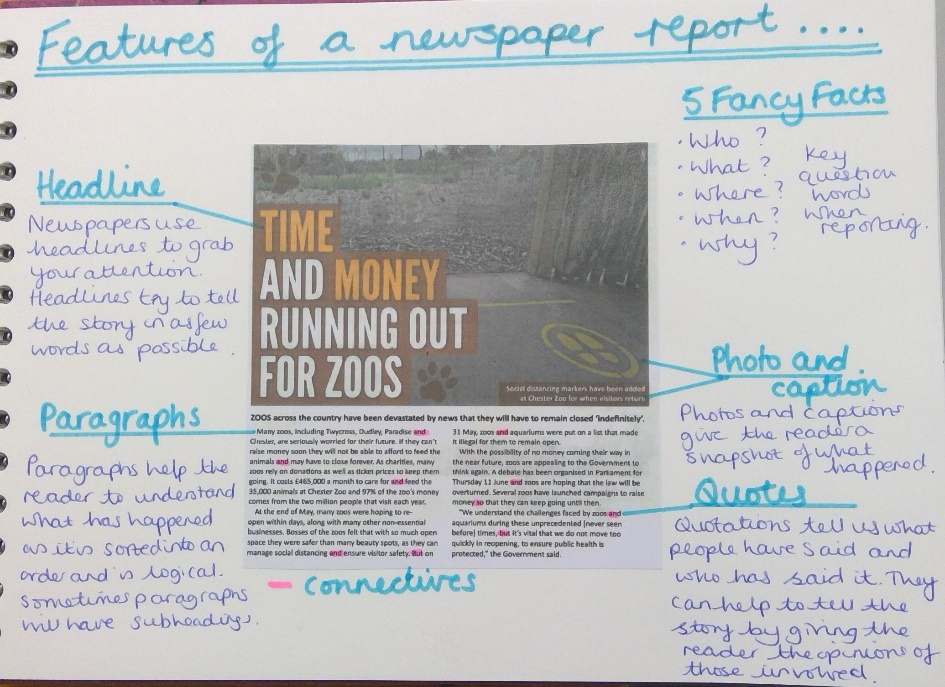 Features of a newspaper report ....
Headline
Newspapers use
headlines to grab
your attention.
Headlines try to tell
the story in as few
words as possible.
Paragraphs
Paragraphs help the
reader to understand
what has happened
as it is sorted into an
order and is logical.
Sometimes paragraphs
will have subheadings.
TIME
AND MONEY
RUNNING OUT
FOR ZOOS
Social distancing markers have been added
at Chester Zoo for when visitors return
ZOOS across the country have been devastated by news that they will have to remain closed 'indefinitely'.
Many zoos, including Twycross, Dudley, Paradise and
Chester, are seriously worried for their future. If they can't
raise money soon they will not be able to afford to feed the
animals and may have to close forever. As charities, many
zoos rely on donations as well as ticket prices to keep them
going. It costs £465,000 a month to care for and feed the
35,000 animals at Chester Zoo and 97% of the zoo's money
comes from the two million people that visit each year.
At the end of May, many zoos were hoping to re-
open within days, along with many other non-essential
businesses. Bosses of the zoos felt that with so much open
space they were safer than many beauty spots, as they can
manage social distancing and ensure visitor safety. But on
31 May, zoos and aquariums were put on a list that made
it illegal for them to remain open.
With the possibility of no money coming their way in
the near future, zoos are appealing to the Government to
think again. A debate has been organised in Parliament for
Thursday 11 June and zoos are hoping that the law will be
overturned. Several zoos have launched campaigns to raise
money so that they can keep going until then.
"We understand the challenges faced by zoos and
aquariums during these unprecedented [never seen
before] times, but it's vital that we do not move too
quickly in reopening, to ensure public health is
protected," the Government said.
connectives
5 Fancy Facts
• Who ?
• What ?
• where ?
• when ?
• why ?
Key
question
words
when
reporting.
Photo and
caption
Photos and captions
give the reader a
snapshot of what
happened.
Quotes
Quotations tell us what
people have said and
who has said it. They
can help to tell the
story by giving the
reader the opinions of
those involved.